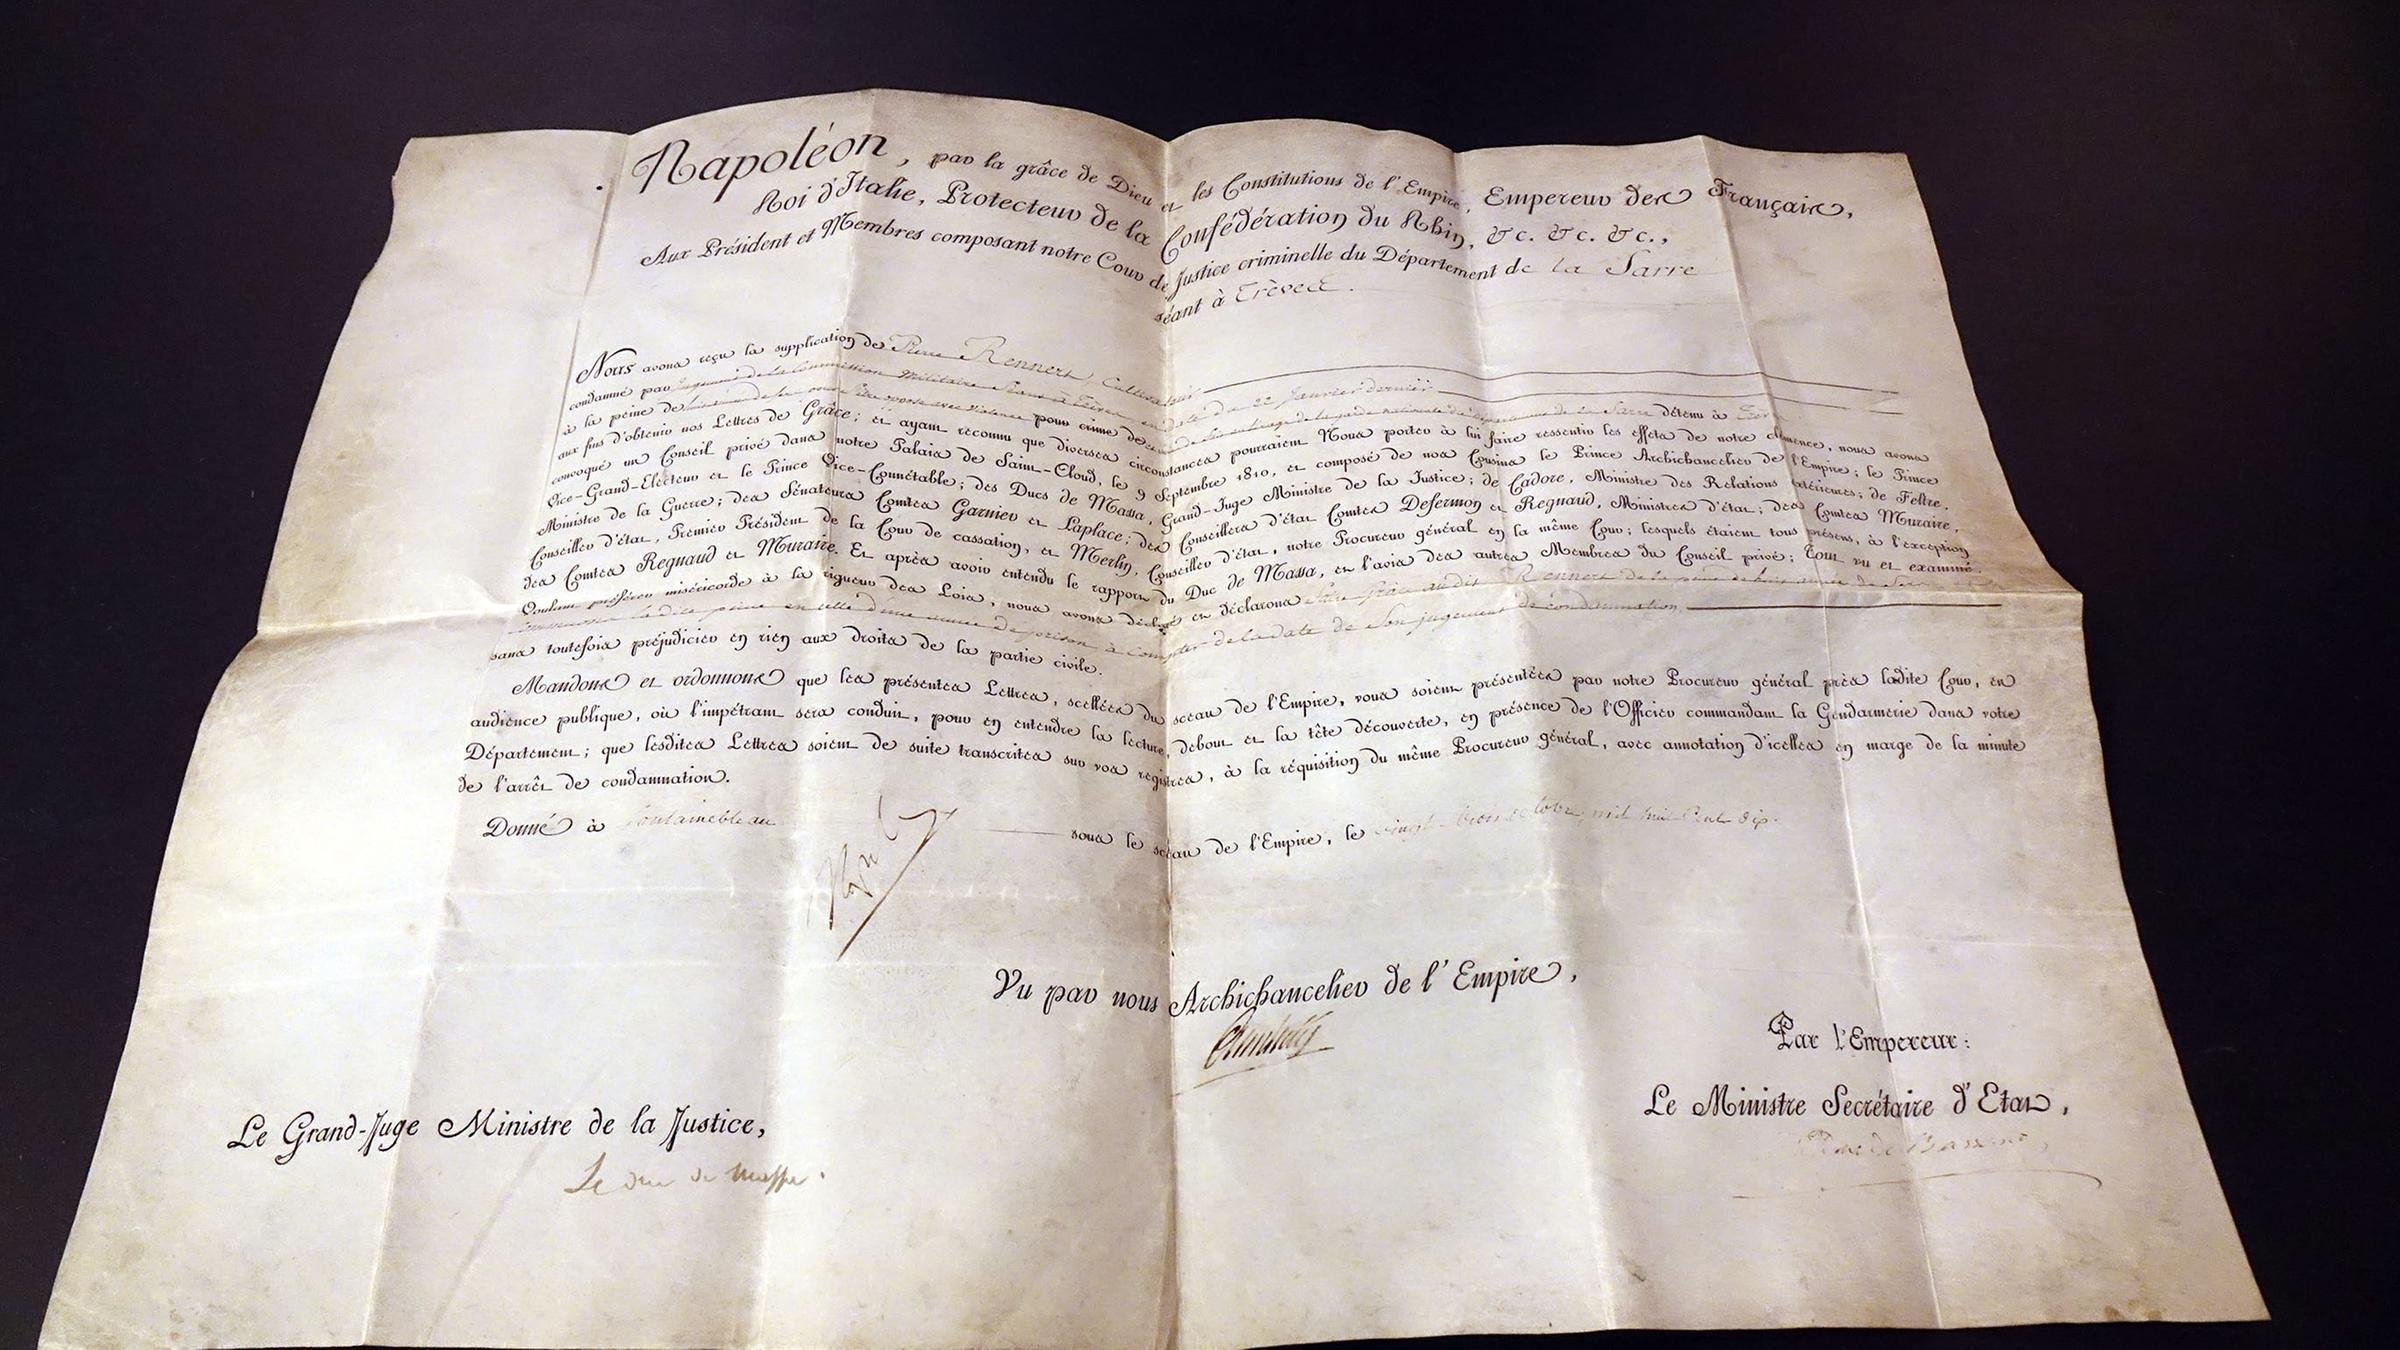 Napoléon, par la grâce de Dieu et les Constitutions de l'Empire, Empereur des Français,
Roi d'Italie, Protecteur de la Confédération du Rhin, &c. &c. &c.,
Aux Président et Membres composant notre Cour de Justice criminelle du Département de la Sarre
séant à Trèves.
Nous avons reçu la supplication de Pierre Rennert, Cultivateur
condamné par jugement de la Commission Militaire Séant à Trèves en date du 22 Janvier dernier
à la peine de pour crime de détenu à
aux fins d'obtenir nos Lettres de Grâce; et ayant reconnu que diverses circonstances pourraient Nous porter à lui faire ressentir les effets de notre clémence, nous avons
convoqué un Conseil privé dans notre Palais de Saint-Cloud, le 9 Septembre 1810, et composé de nos Cousins le Prince Archichancelier de l'Empire; le Prince
Vice-Grand-Electeur et le Prince Vice-Connétable; des Ducs de Massa, Grand-Juge Ministre de la Justice; de Cadore, Ministre des Relations extérieures; de Feltre,
Ministre de la Guerre; des Sénateurs Comtes Garnier et Laplace; des Conseillers d'état Comtes Defermon et Regnaud, Ministres d'état; des Comtes Muraire,
Conseiller d'état, Premier Président de la Cour de cassation, et Merlin, Conseiller d'état, notre Procureur général en la même Cour; lesquels étaient tous présens, à l'exception
des Comtes Regnaud et Muraire. Et après avoir entendu le rapport du Duc de Massa, et l'avis des autres Membres du Conseil privé; Tout vu et examiné.
Voulant préférer miséricorde à la rigueur des Lois, nous avons déclaré et déclarons faire Grâce audit Rennert de la peine de
Commuons la dite peine en celle d'une année de prison à compter de la date de Son jugement de condamnation,
sans toutefois préjudicier en rien aux droits de la partie civile.
Mandons et ordonnons que les présentes Lettres, scellées du sceau de l'Empire, vous soient présentées par notre Procureur général près ladite Cour, en
audience publique, où l'impétrant sera conduit, pour en entendre la lecture, debout et la tête découverte, en présence de l'Officier commandant la Gendarmerie dans votre
Département; que lesdites Lettres soient de suite transcrites sur vos registres, à la réquisition du même Procureur général, avec annotation d'icelles en marge de la minute
de l'arrêt de condamnation.
Donné à Fontainebleau sous le sceau de l'Empire, le vingt-trois octobre, mil huit Cent dix.
Vu par nous Archichancelier de l'Empire,
Par l'Empereur:
Le Ministre Secrétaire d'Etat,
Le Duc de Bassano,
Le Grand-Juge Ministre de la Justice,
Le duc de Massa.